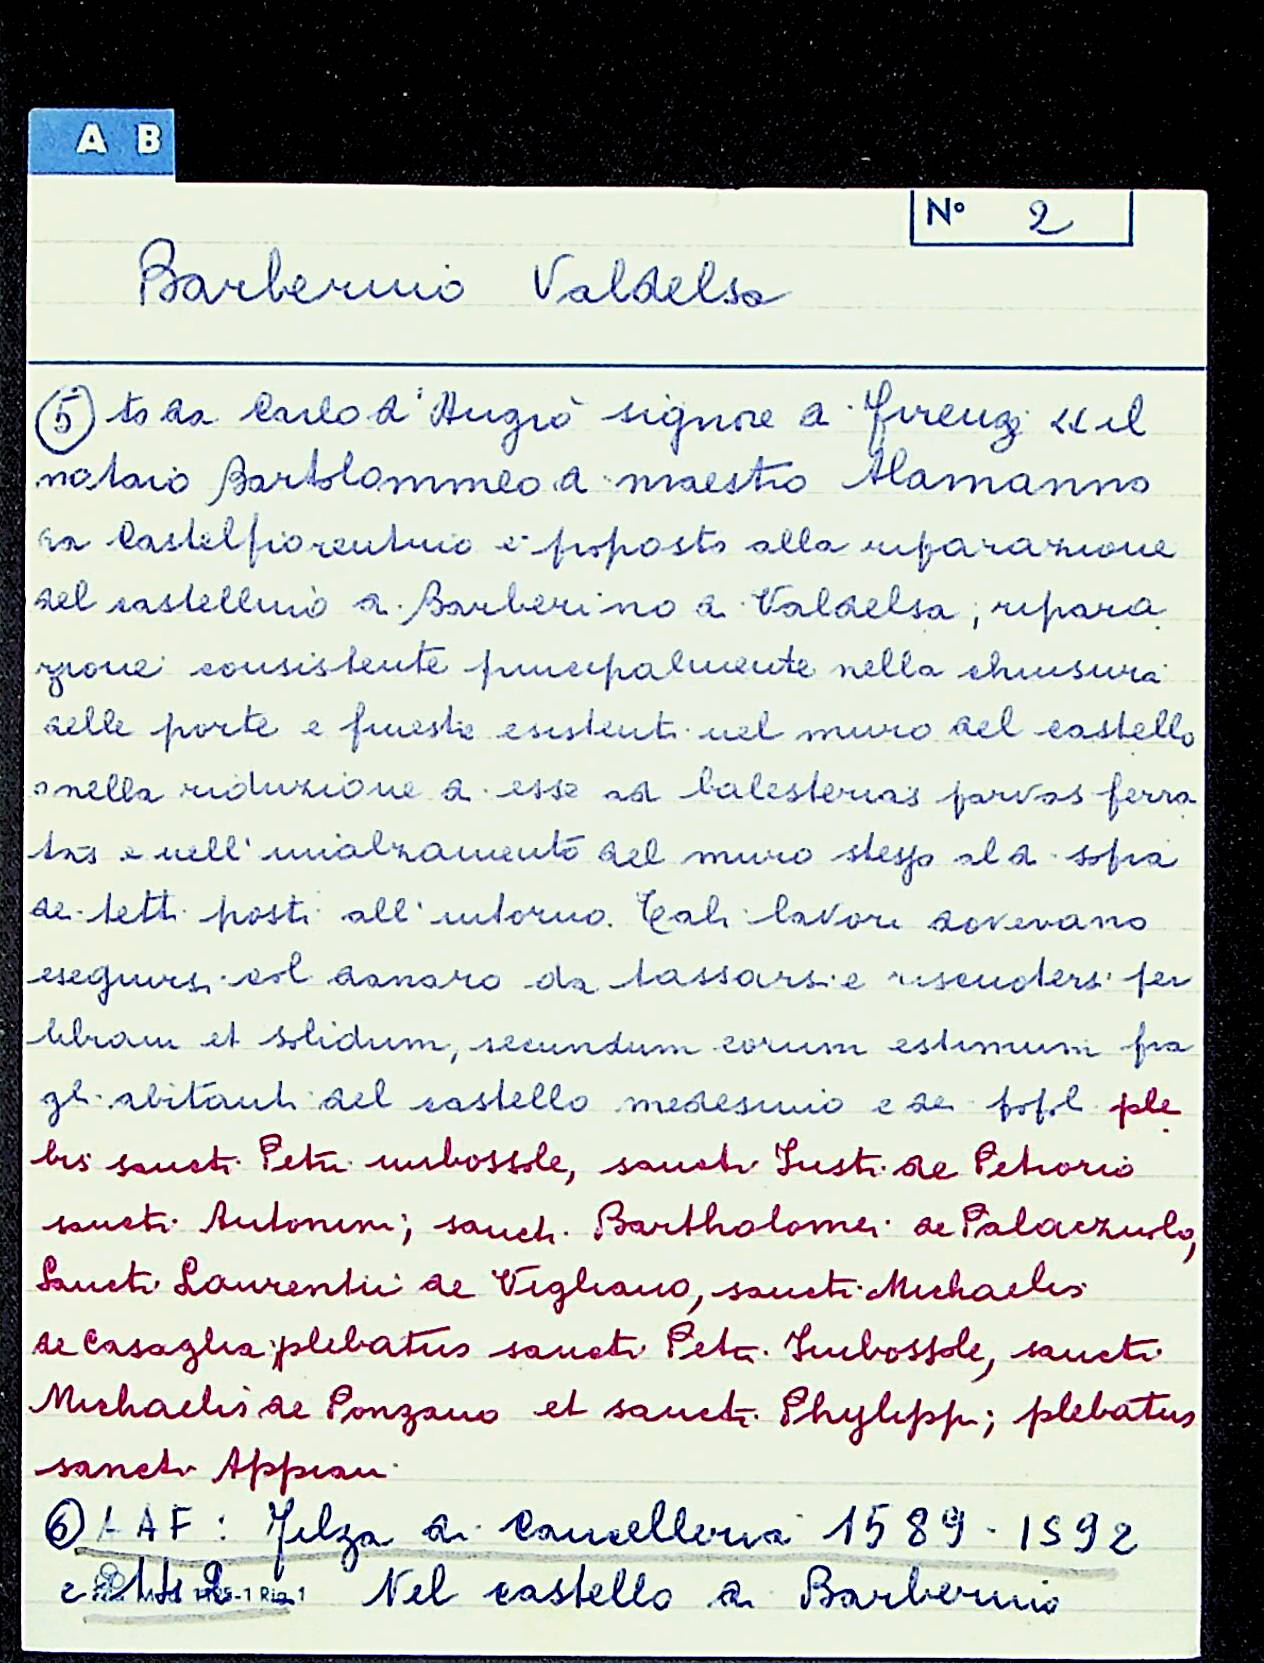 A B
N° 2
Barberino Valdelsa
⑤ to da Carlo d'Angiò signore di Firenze «il
notaio Bartolommeo di maestro Alamanno
da Castelfiorentino è proposto alla riparazione
del castellino di Barberino di Valdelsa, ripara
zione consistente principalmente nella chiusura
delle porte e finestre esistenti nel muro del castello
nella riduzione di esse ad balesterias parvas ferra
tas e nell'inialzamento del muro stesso al di sopra
dei tetti posti all'intorno. Tali lavori dovevano
eseguirsi col danaro da tassarsi e riscuotersi per
libram et solidum, secundum eorum estimum fra
gli abitanti del castello medesimo e dei popoli ple
bis sancti Petri inbossole, sancti Iusti de Petrorio
sancti Antonini; sancti Bartholomei de Palaczuolo,
Sancti Laurentii de Vigliano, sancti Michaelis
de Casaglia; plebatus sancti Petri Imbossole, sancti
Michaelis de Ponzano et sancti Phylippi; plebatus
sancti Appiani
⑥ AAF: Filza di Cancelleria 1589-1592
Nel castello di Barberino